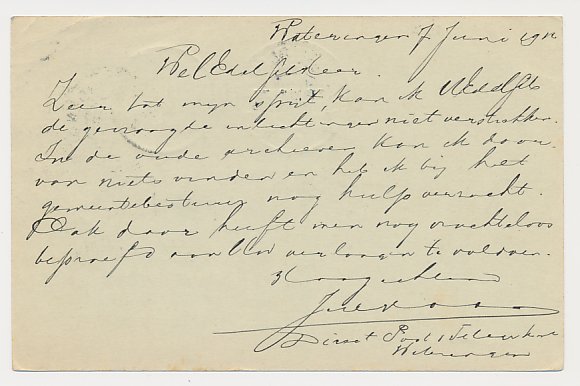 Wateringen 7 Juni 19
WelEdelGelHeer.
Zeer tot mijn spijt, kan ik UEdelGeb
de gevraagde inlichtingen niet verstrekken.
In de oude archieven kan ik daar
van niets vinden en heb ik bij het
gemeentebestuur nog hulp verzocht.
Ook daar heeft men nog vruchteloos
beproefd aan Uw verlangen te voldoen.
Hoogachtend
Direct Post
Wateringen